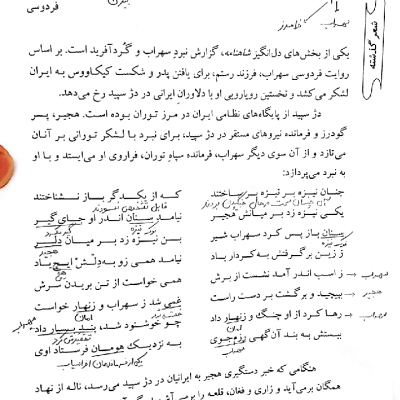 فردوسی
شعر گذشته
یکی از بخش‌های دل‌انگیز شاهنامه، گزارش نبردِ سهراب و گُردآفرید است. بر اساس
روایت فردوسی سهراب، فرزند رستم، برای یافتن پدر و شکست کیکاووس به ایران
لشکر می‌کشد و نخستین رویارویی او با دلاورانِ ایرانی در دژ سپید رخ می‌دهد.
دژ سپید از پایگاه‌های نظامی ایران در مرز توران بوده است. هجیر، پسر
گودرز و فرمانده نیروهای مستقر در دژ سپید، برای نبرد با لشکر تورانی بر آنان
می‌تازد و از آن سوی دیگر سهراب، فرمانده سپاهِ توران، فراروی او می‌ایستد و با او
به نبرد می‌پردازد:
چنان نیزه بر نیزه بر ساختند که از یکدگر باز نشناختند
یکی نیزه زد بر میانش هجیر نیامد سنان اندر او جای گیر
سنان باز پس کرد سهراب شیر بن نیزه زد بر میان دلیر
ز زین برگرفتش به کردار باد نیامد همی زو به دلْش ایچ یاد
سهراب → ز اسب اندر آمد نشست از برش همی خواست از تن بریدن سرش
هجیر → بپیچید و برگشت بر دست راست غمی شد ز سهراب و زنهار خواست
سهراب → رها کرد از او چنگ و زنهار داد چو خوشنود شد، پند بسیار داد
ببستش به بند آن گهی رزمجوی به نزدیک هومان فرستاد اوی
هنگامی که خبر دستگیری هجیر به ایرانیان در دژ سپید می‌رسد، ناله از نهاد
همگان برمی‌آید و زاری و فغان، قلعه را